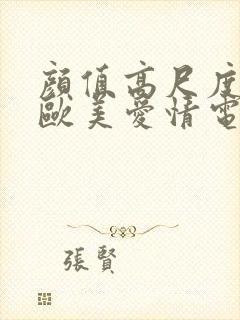 顔值高尺度
歐美愛情電
張賢